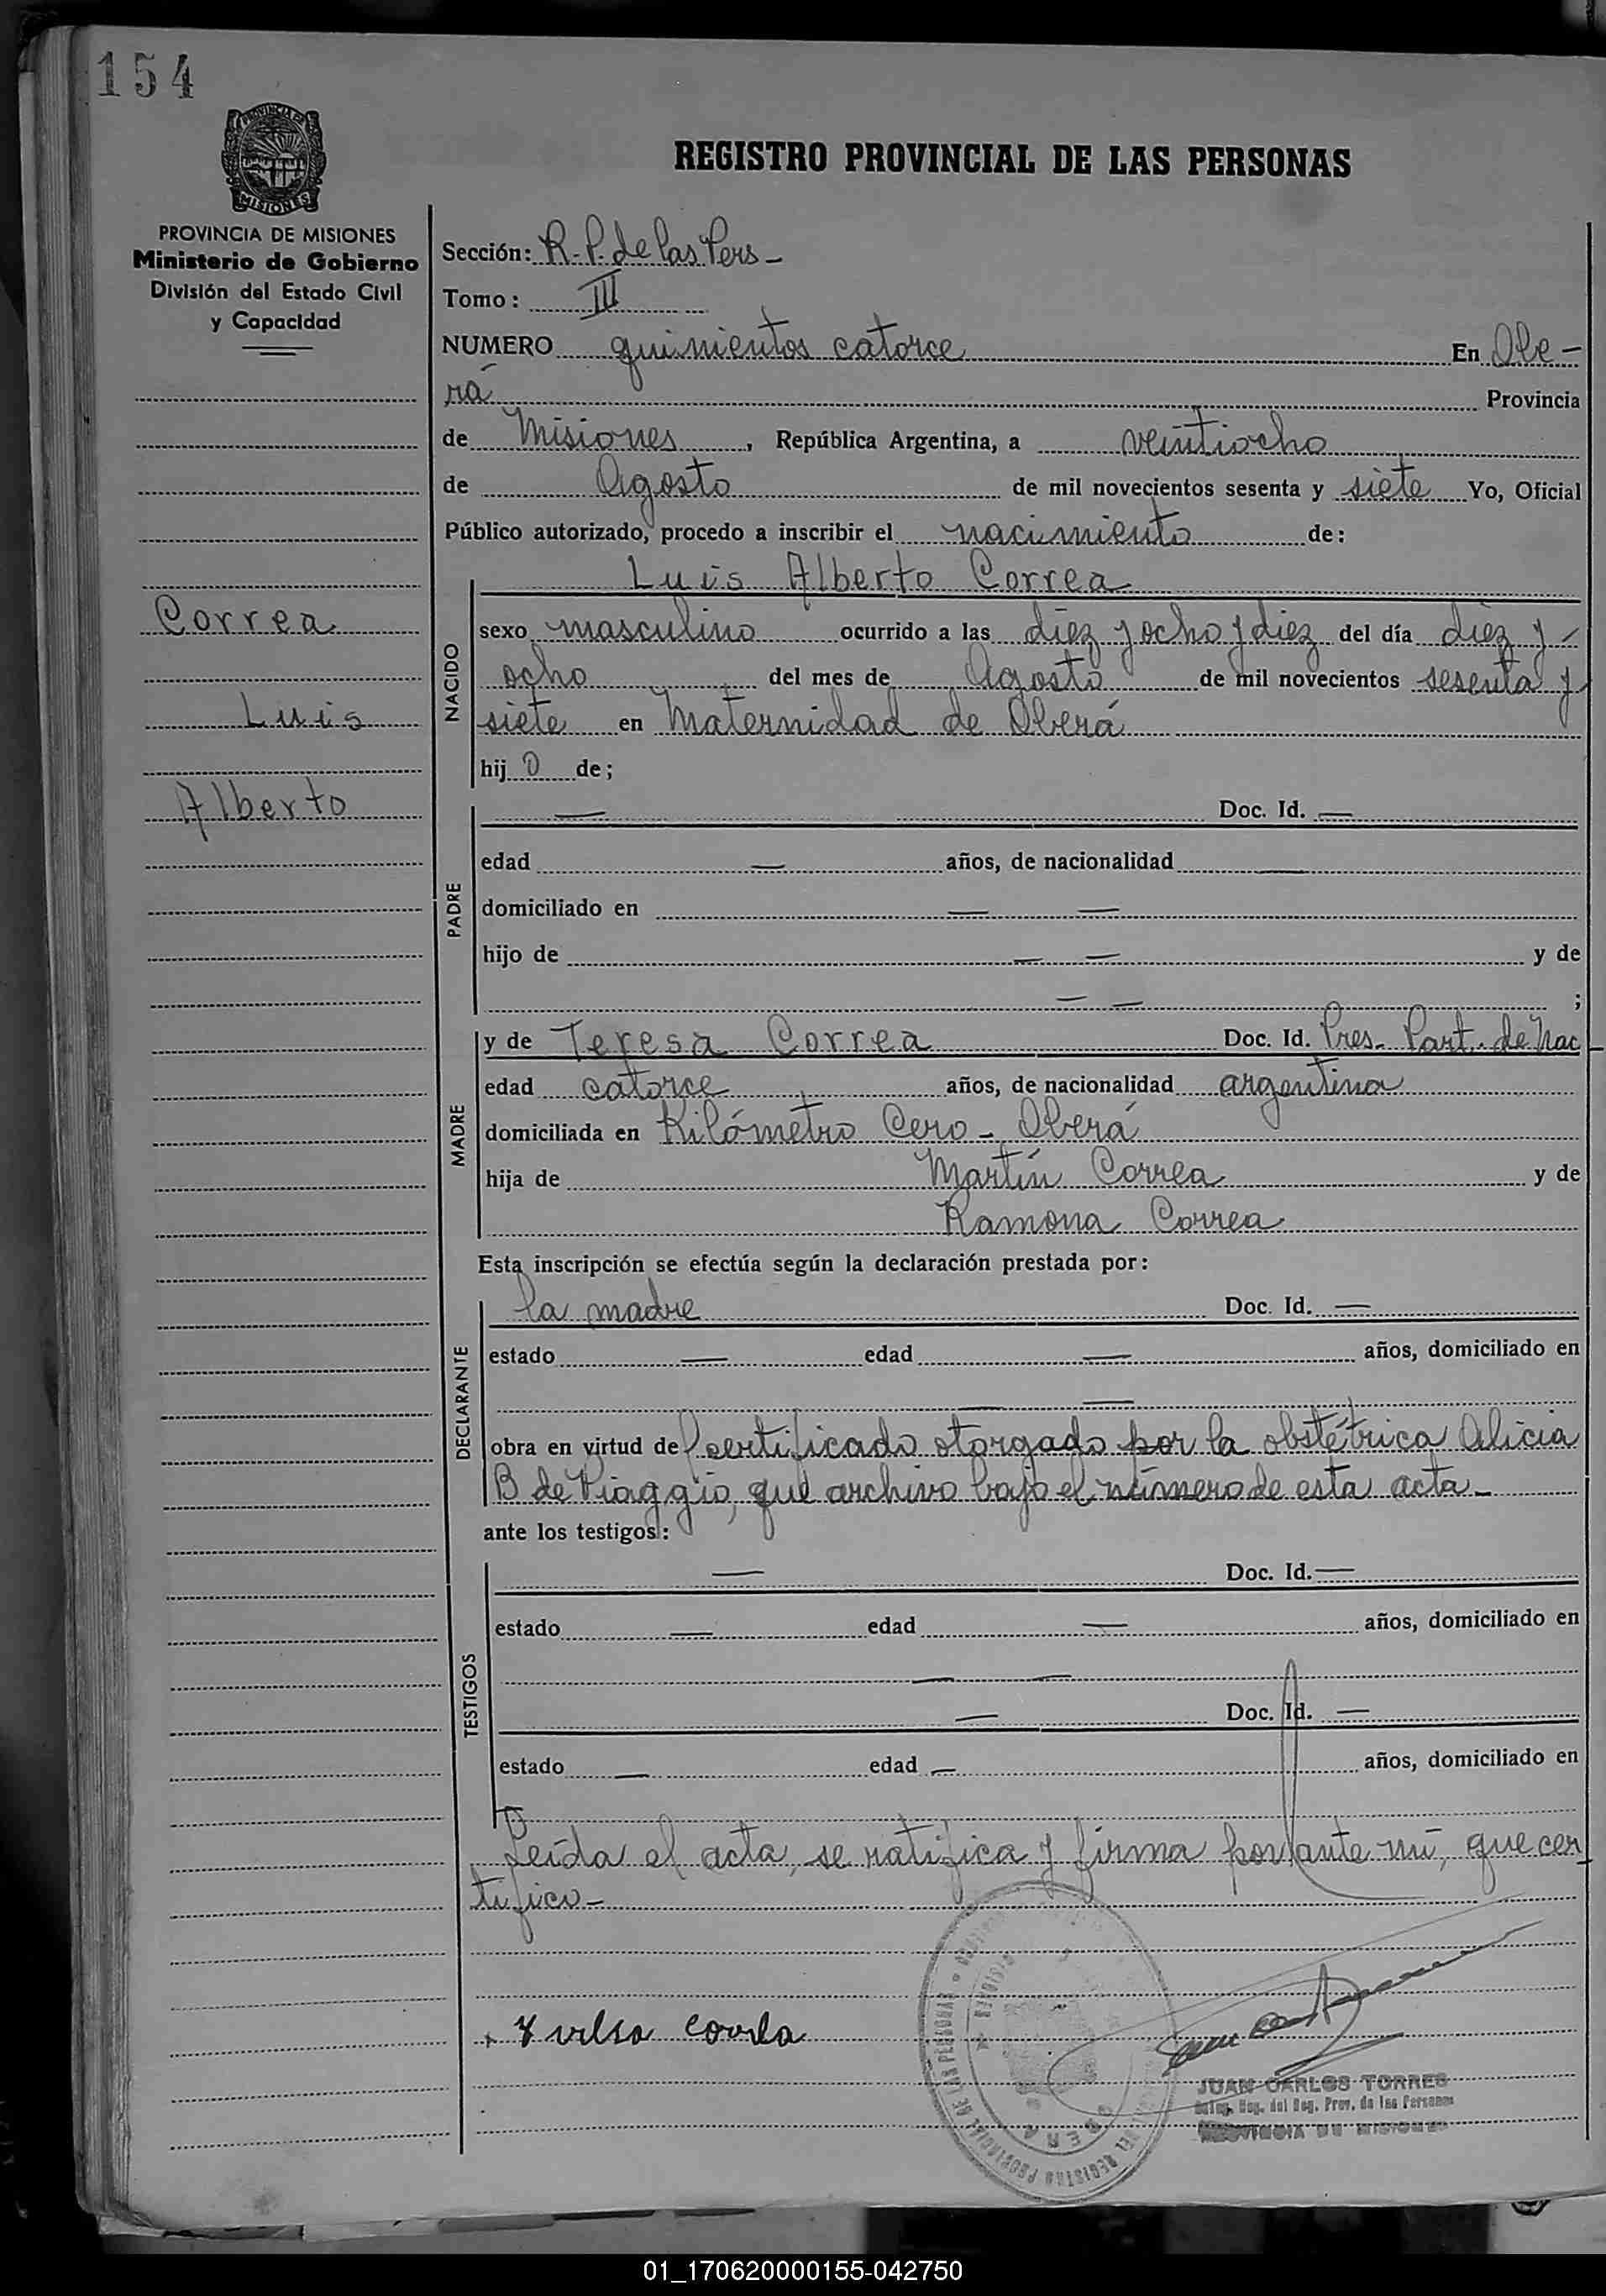 154
PROVINCIA DE
MISIONES
PROVINCIA DE MISIONES
Ministerio de Gobierno
División del Estado Civil
y Capacidad
Correa
Luis
Alberto
REGISTRO PROVINCIAL DE LAS PERSONAS
Sección: R. P. de las Pers -
Tomo: III
NUMERO quinientos catorce En Obe-
rá Provincia
de Misiones, República Argentina, a veintiocho
de Agosto de mil novecientos sesenta y siete Yo, Oficial
Público autorizado, procedo a inscribir el nacimiento de:
Luis Alberto Correa
NACIDO
sexo masculino ocurrido a las diez y ocho y diez del día diez y -
ocho del mes de Agosto de mil novecientos sesenta y
siete en Maternidad de Oberá
hij o de;
PADRE
— Doc. Id. —
edad — años, de nacionalidad —
domiciliado en — —
hijo de — — y de
— — ;
MADRE
y de Teresa Correa Doc. Id. Pres. Part. de Nac
edad catorce años, de nacionalidad argentina
domiciliada en Kilómetro Cero - Oberá
hija de Martín Correa y de
Ramona Correa
Esta inscripción se efectúa según la declaración prestada por:
DECLARANTE
la madre Doc. Id. —
estado — edad — años, domiciliado en
— —
obra en virtud de certificado otorgado por la obstétrica Alicia
B de Piaggio, que archivo bajo el número de esta acta -
ante los testigos:
TESTIGOS
— Doc. Id. —
estado — edad — años, domiciliado en
— —
— Doc. Id. —
estado — edad — años, domiciliado en
Leída el acta, se ratifica y firma por ante mí, que cer
tifico -
correa
REGISTRO PROVINCIAL DE LAS PERSONAS
MISIONES
OBERA
JUAN CARLOS TORRES
del Reg. Prov. de las Personas
PROVINCIA DE MISIONES
01_170620000155-042750